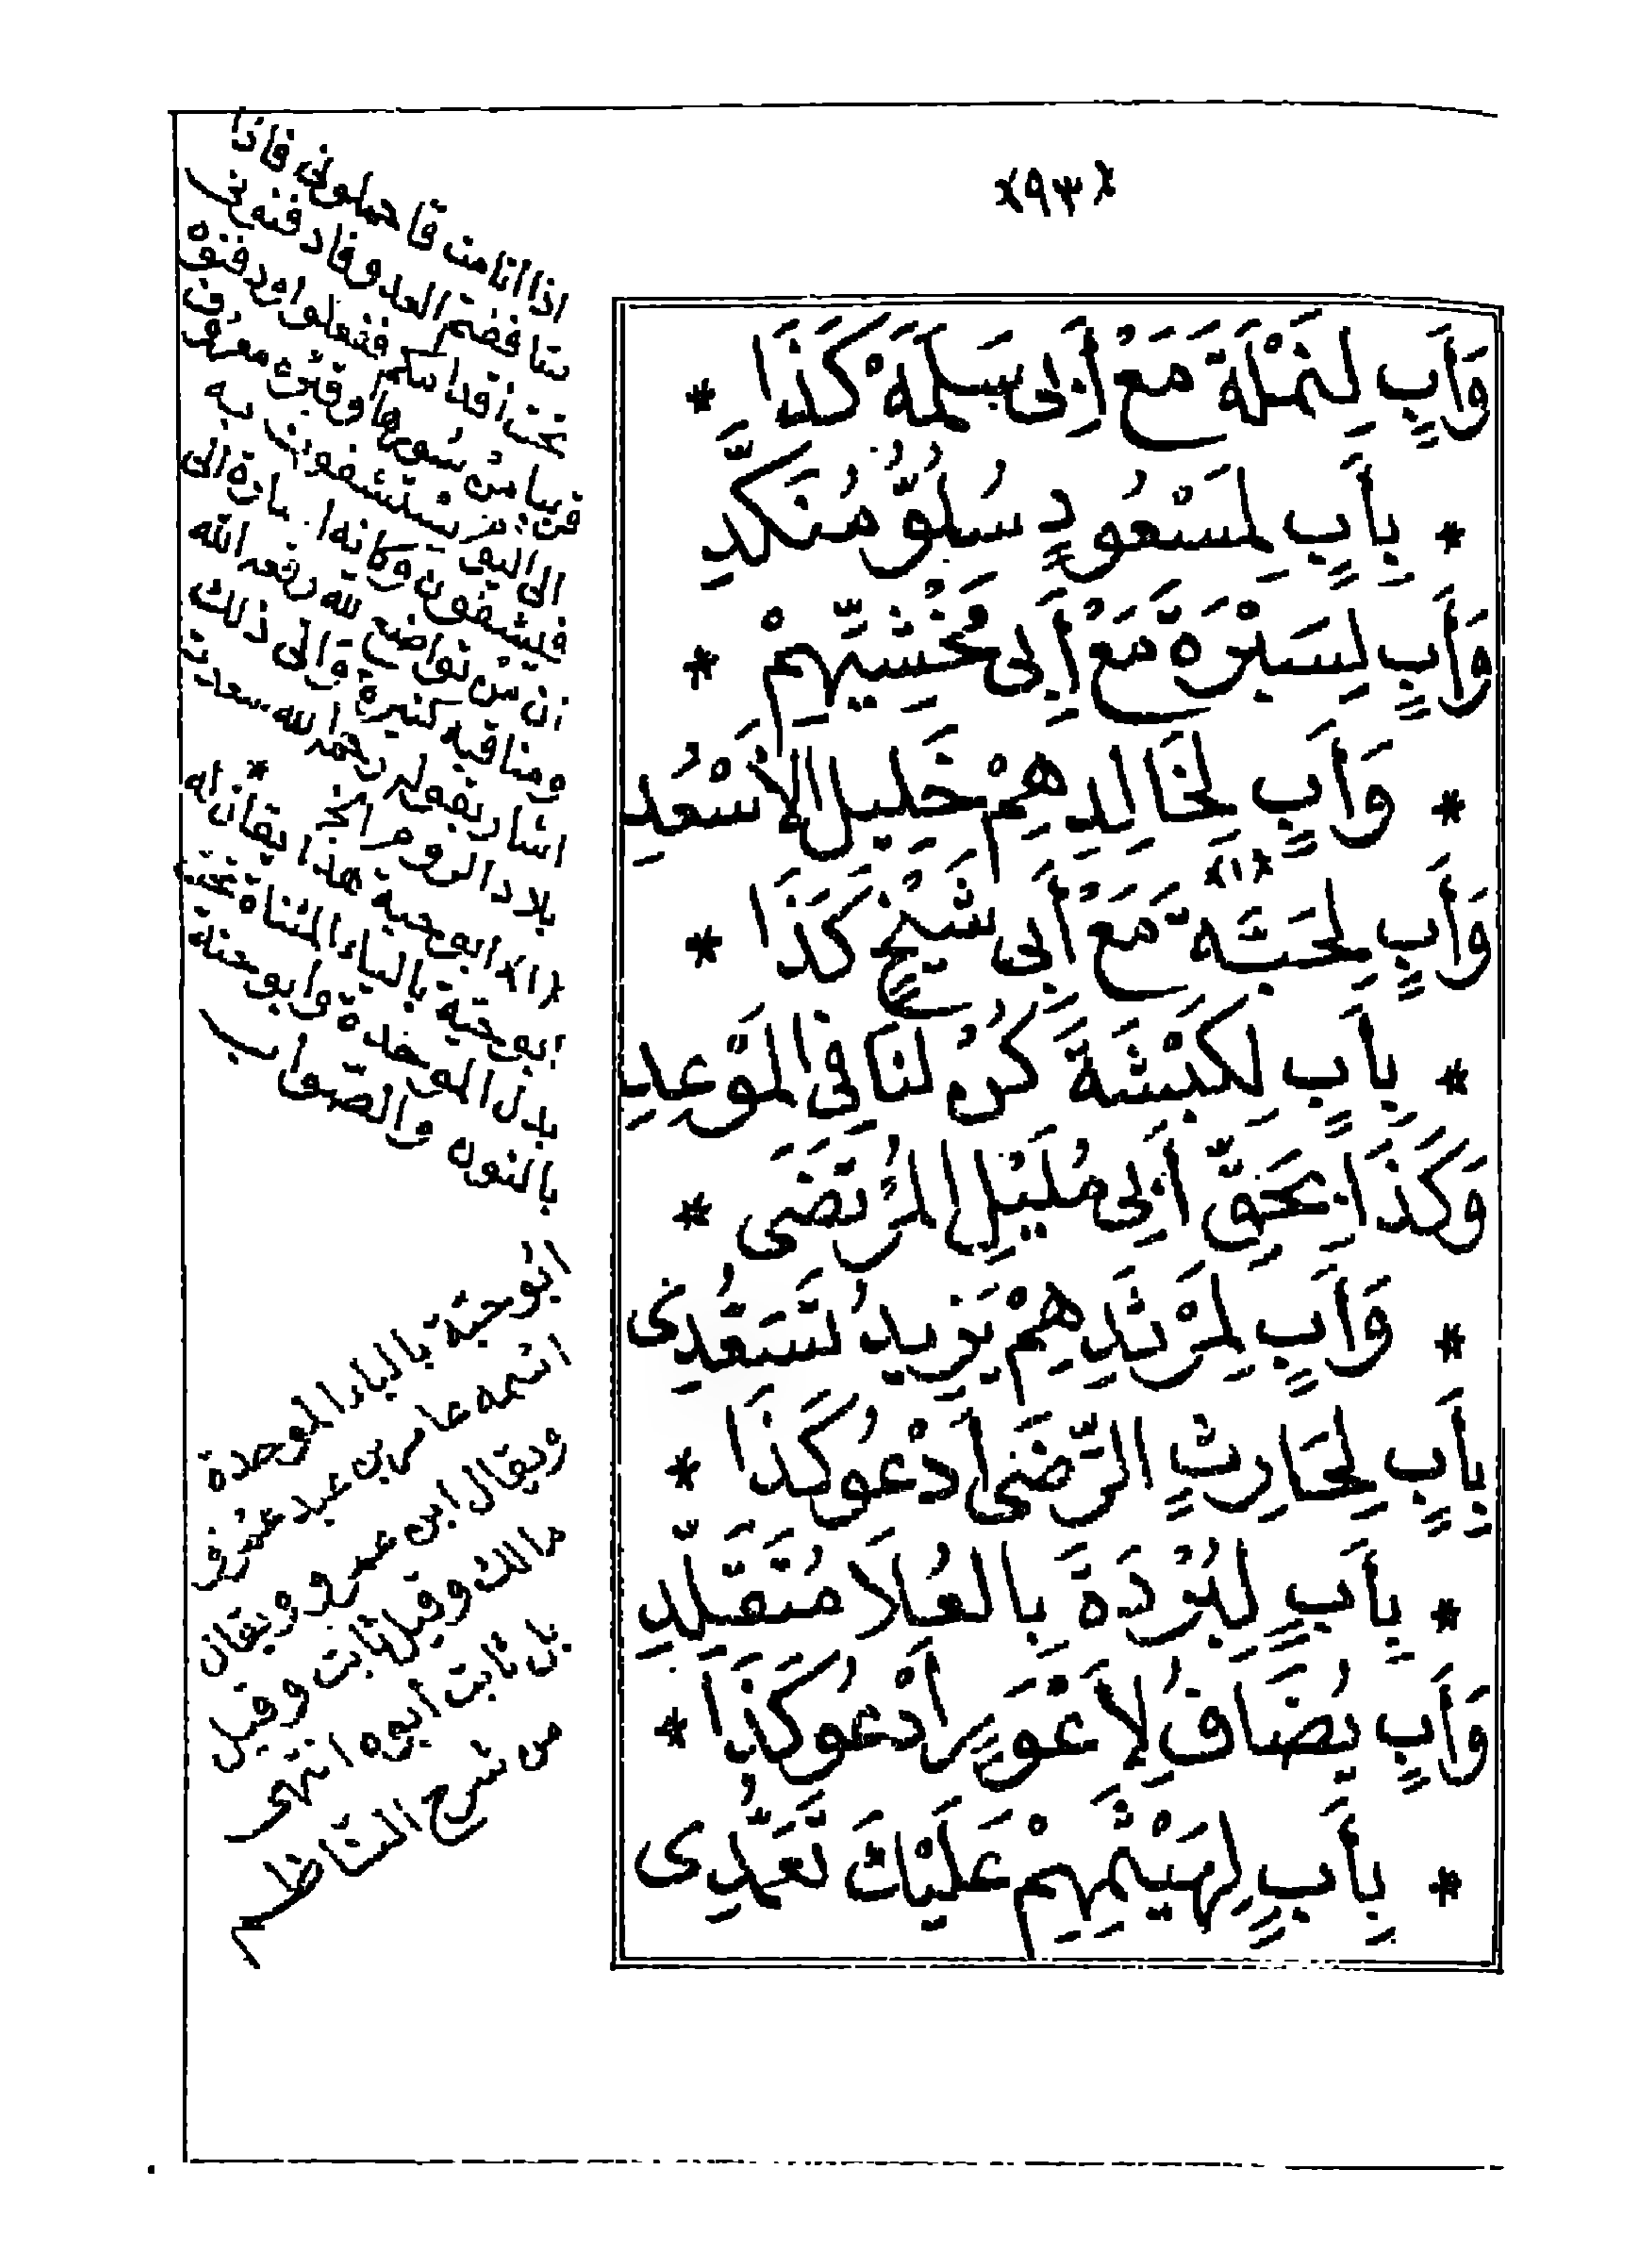 ﴿٩٣﴾
وَأَبٍ لِنَمْلَةَ مَعْ أَبِى سَلَمَهْ كَذَا *
* بِأَبٍ لِمَسْعُودٍ سُلُوُّ مُنَكَّدِ
وَأَبٍ لِسَبْرَةَ مَعْ أَبِى مَخْشِيِّهِمْ *
* وَأَبٍ لِخَالِدِهِمْ خَلِيلِ الْأَسْعُدِ
وَأَبٍ لِحَبَّةَ ﴿١﴾ مَعْ أَبِى شَيْخٍ كَذَا *
* بِأَبٍ لِكَبْشَةَ كُنْ لَنَا فِى الْمَوْعِدِ
وَكَذَا بِحَقِّ أَبِى مُلَيْلِ الْمُرْتَضَى *
* وَأَبٍ لِمَرْثَدِهِمْ يَزِيدُ تَسَعُّدِى
بِأَبٍ لِحَارِثٍ الرِّضَى أَدْعُو كَذَا *
* بِأَبٍ لِبُرْدَةَ بِالعُلَا مُتَقَلِّدِ
وَأَبٍ يُضَافُ لِأَعْوَرٍ أَدْعُو كَذَا *
* بِأَبٍ لِهَيْثَمِهِمْ عَلَيْكَ تَعَدِّى
اذا انا مت فاحملونى فاذا
صاففتم العدو فادفنونى
تحت اقدامكم ففعلوا ودفنوه
قريبا من سورها وقبره معروف
الى اليوم يستشفون به
فيشفون وكانه اشارة الى
ان من تواضع لله رفعه الله
ومناقبه كثيرة والى ذلك
اشار بقوله رحمه الله سعدت
بلاد الروم الخ *
﴿١﴾ ابو حبة هذا يقال له
ابو حية بالياء المثناة تحت
بدل الموحدة وابو حنة
بالنون والصواب
ابو حبة بالباء الموحدة
اسمه عامر بن عبد عمرو
ويقال ابن عمرو ويقال
مالك وقيل ثابت وقيل
بل ثابت أبوه انتهى
من شرح الناظم